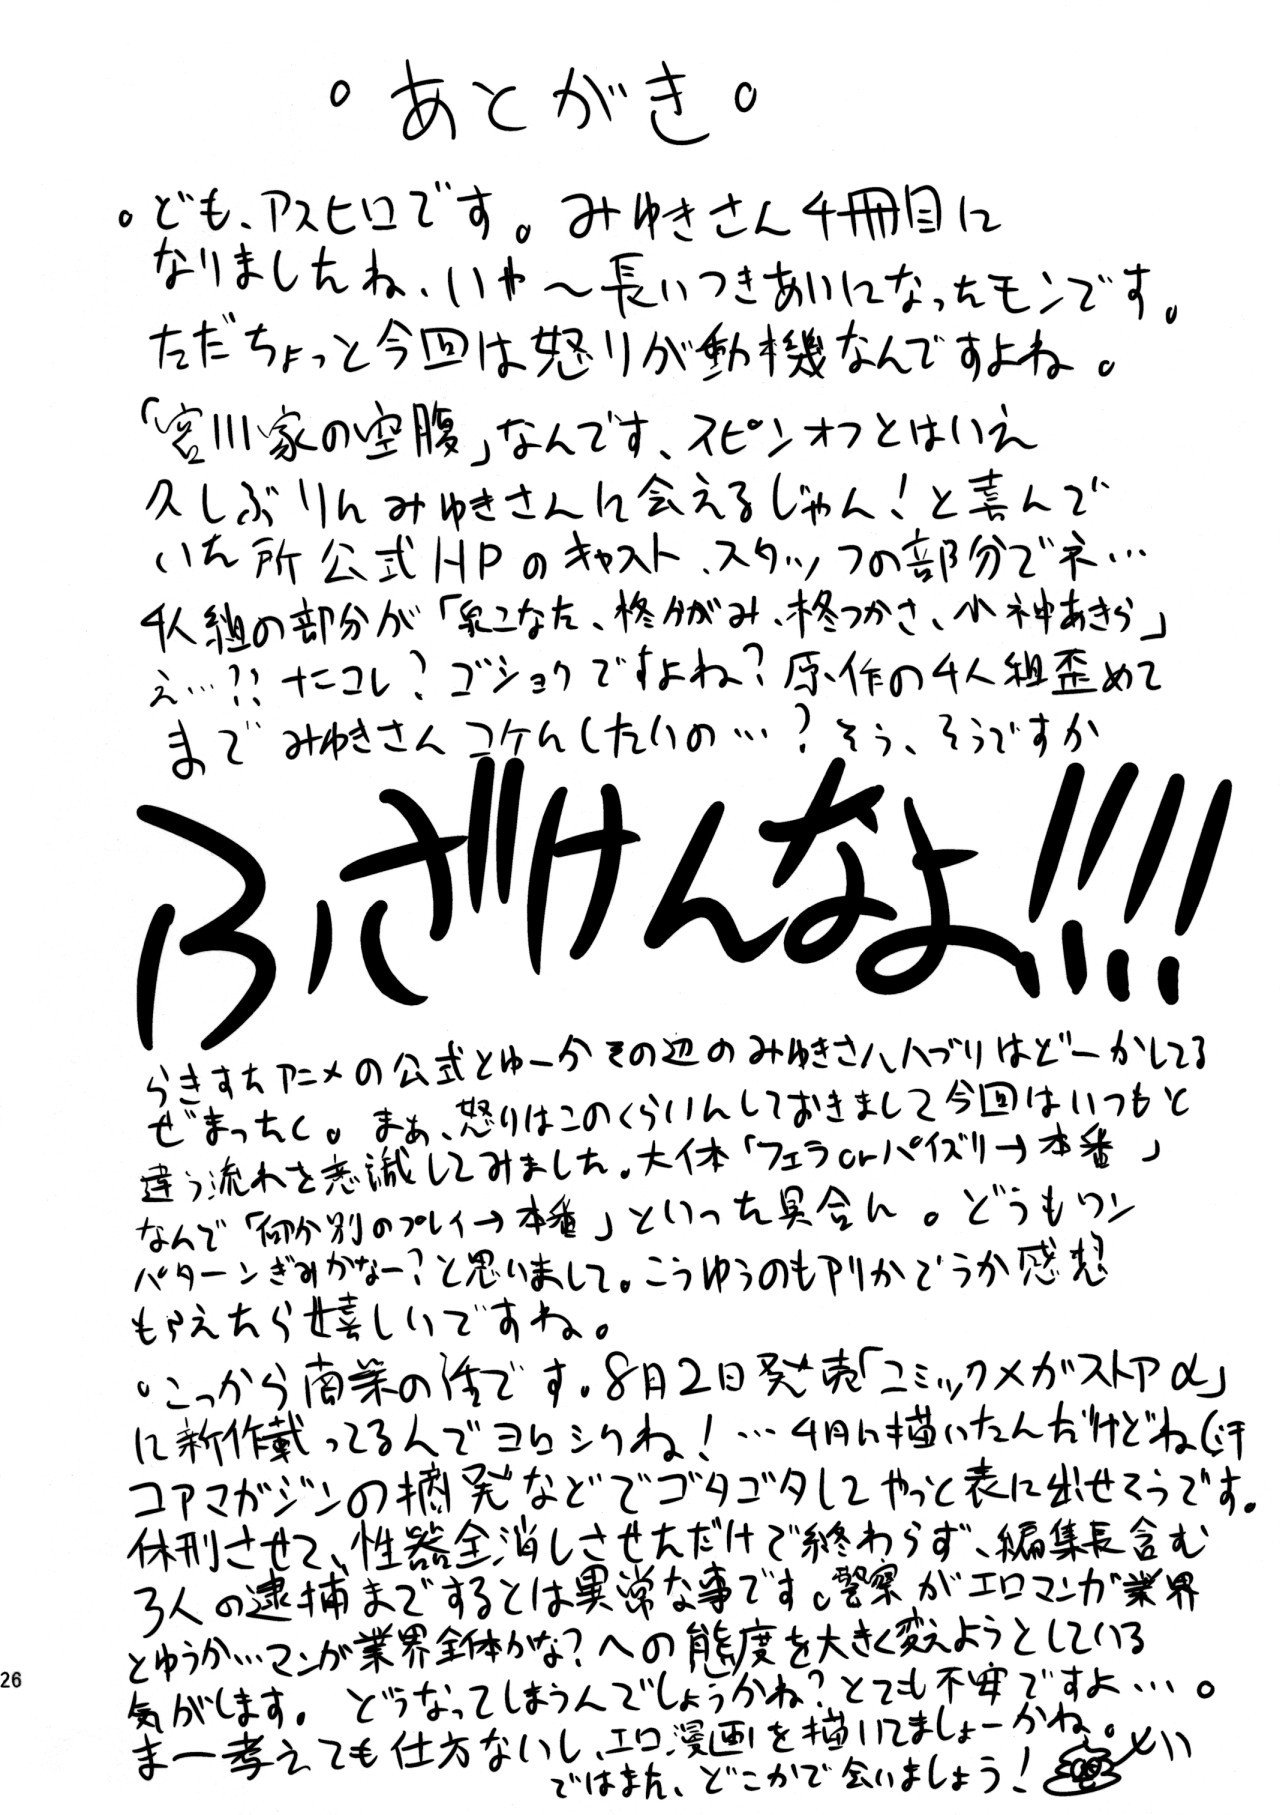 。あとがき。
。ども、アスヒロです。みゆきさん4冊目に
なりましたね、いや～長いつきあいになったモンです。
ただちょっと今回は怒りが動機なんですよね。
「宮川家の空腹」なんです、スピンオフとはいえ
久しぶりんみゆきさんに会えるじゃん!と喜んで
いた所公式HPのキャスト、スタッフの部分でネ…
4人組の部分が「泉こなた、柊かがみ、柊つかさ、小神あきら」
え…?? ナニコレ? ゴショクですよね? 原作の4人組歪めて
までみゆきさんコケんしたいの…? そう、そうですか
ふざけんなよ!!!!
らきすたアニメの公式とゆーかその辺のみゆきさんハブりはどーかしてる
ぜまったく。まぁ、怒りはこのくらいんしておきまして今回はいつもと
違う流れを意識してみました。大体「フェラorパイズリ→本番」
なんで「何か別のプレイ→本番」といった具合ん。どうもワン
パターンぎみかなー?と思いまして。こうゆうのもアリかどうか感想
もらえたら嬉しいですね。
。こっから商業の話です。8月2日発売「コミックメガストアα」
に新作載ってるんでヨロシクね! …4月に描いたんだけどね(汗
コアマガジンの摘発などでゴタゴタしてやっと表に出せそうです。
休刊させて、性器全消しさせただけで終わらず、編集長含む
3人の逮捕までするとは異常な事です。警察がエロマンガ業界
とゆうか…マンガ業界全体かな? への態度を大きく変えようとしている
気がします。 どうなってしまうんでしょうかね? とても不安ですよ…。
まー考えても仕方ないし、エロ漫画を描いてましょーかね。
ではまた、どこかで会いましょう!
26